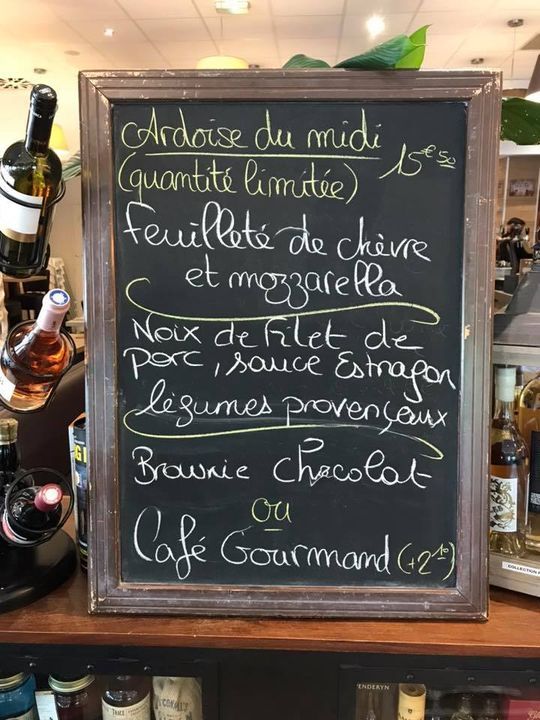 Ardoise du midi
(quantité limitée) 15€50
Feuilleté de chèvre
et mozzarella
Noix de Filet de
porc, sauce Estragon
légumes provençaux
Brownie chocolat
ou
Café Gourmand (+2.10)
ENDERYN
COLLECTION